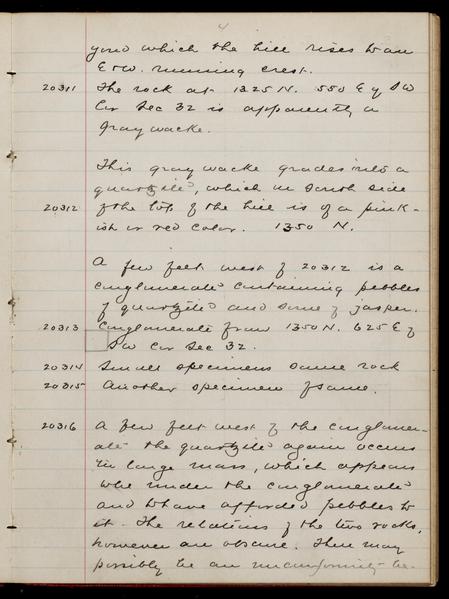 4
yond which the hill rises to an
E & W. running crest.
20311 The rock at 1325 N. 550 E of SW
Cor Sec 32 is apparently a
Graywacke.
This graywacke grades into a
quartzite, which on South side
20312 of the top of the hill is of a pink-
ish or red color. 1350 N.
A few feet west of 20312 is a
conglomerate containing pebbles
of quartzite and some of jasper.
20313 Conglomerate from 1350 N. 625 E of
SW Cor Sec 32.
20314 Small specimens same rock
20315 Another specimen of same.
20316 A few feet west of the conglomer-
ate the quartzite again occurs
in large mass, which appears
to be under the conglomerate
and to have afforded pebbles to
it. The relations of the two rocks,
however are obscure. There may
possibly be an unconformity be-